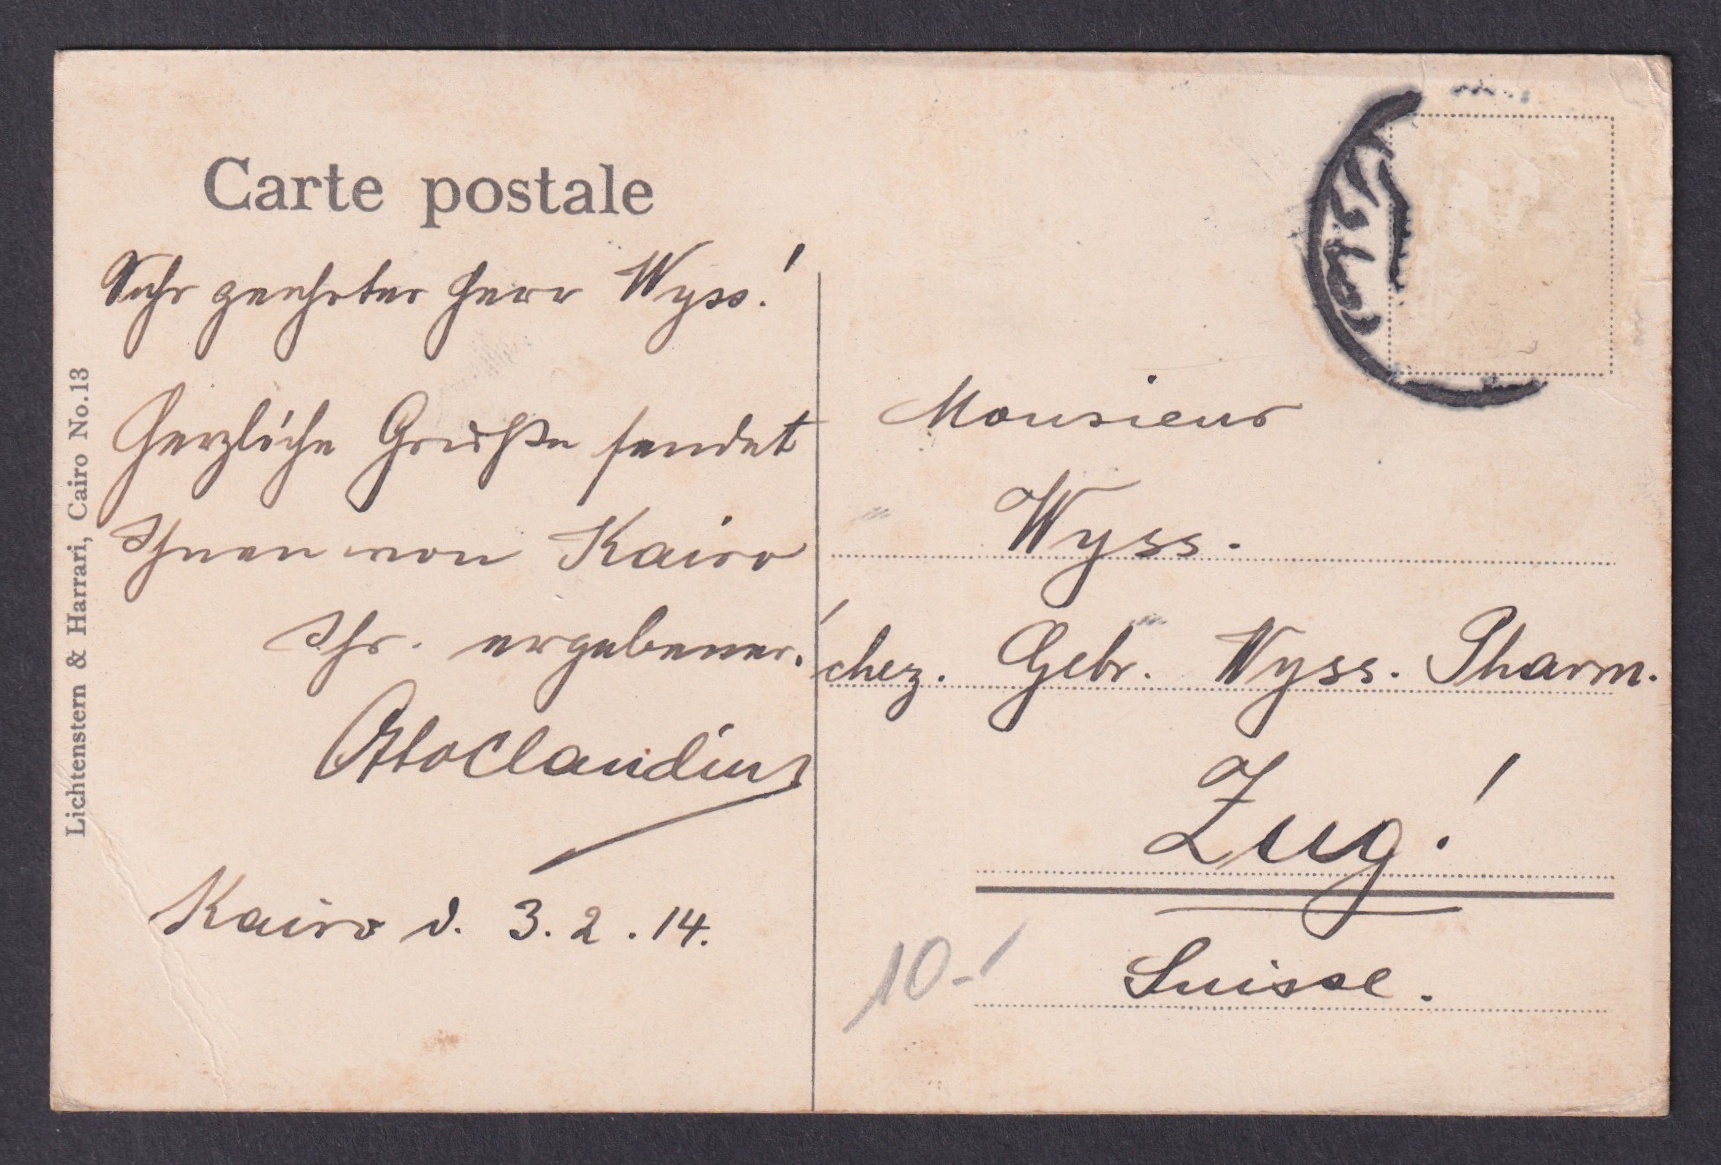 Carte postale
Sehr geehrter Herr Wyss!
Herzliche Grüße sendet
Ihnen von Kairo
Ihr. ergebener!
Otto Claudius
Kairo d. 3.2.14.
Lichtenstern & Harrari, Cairo No. 13
Monsieur
Wyss.
chez. Gebr. Wyss. Pharm.
Zug!
Suisse.
10.-